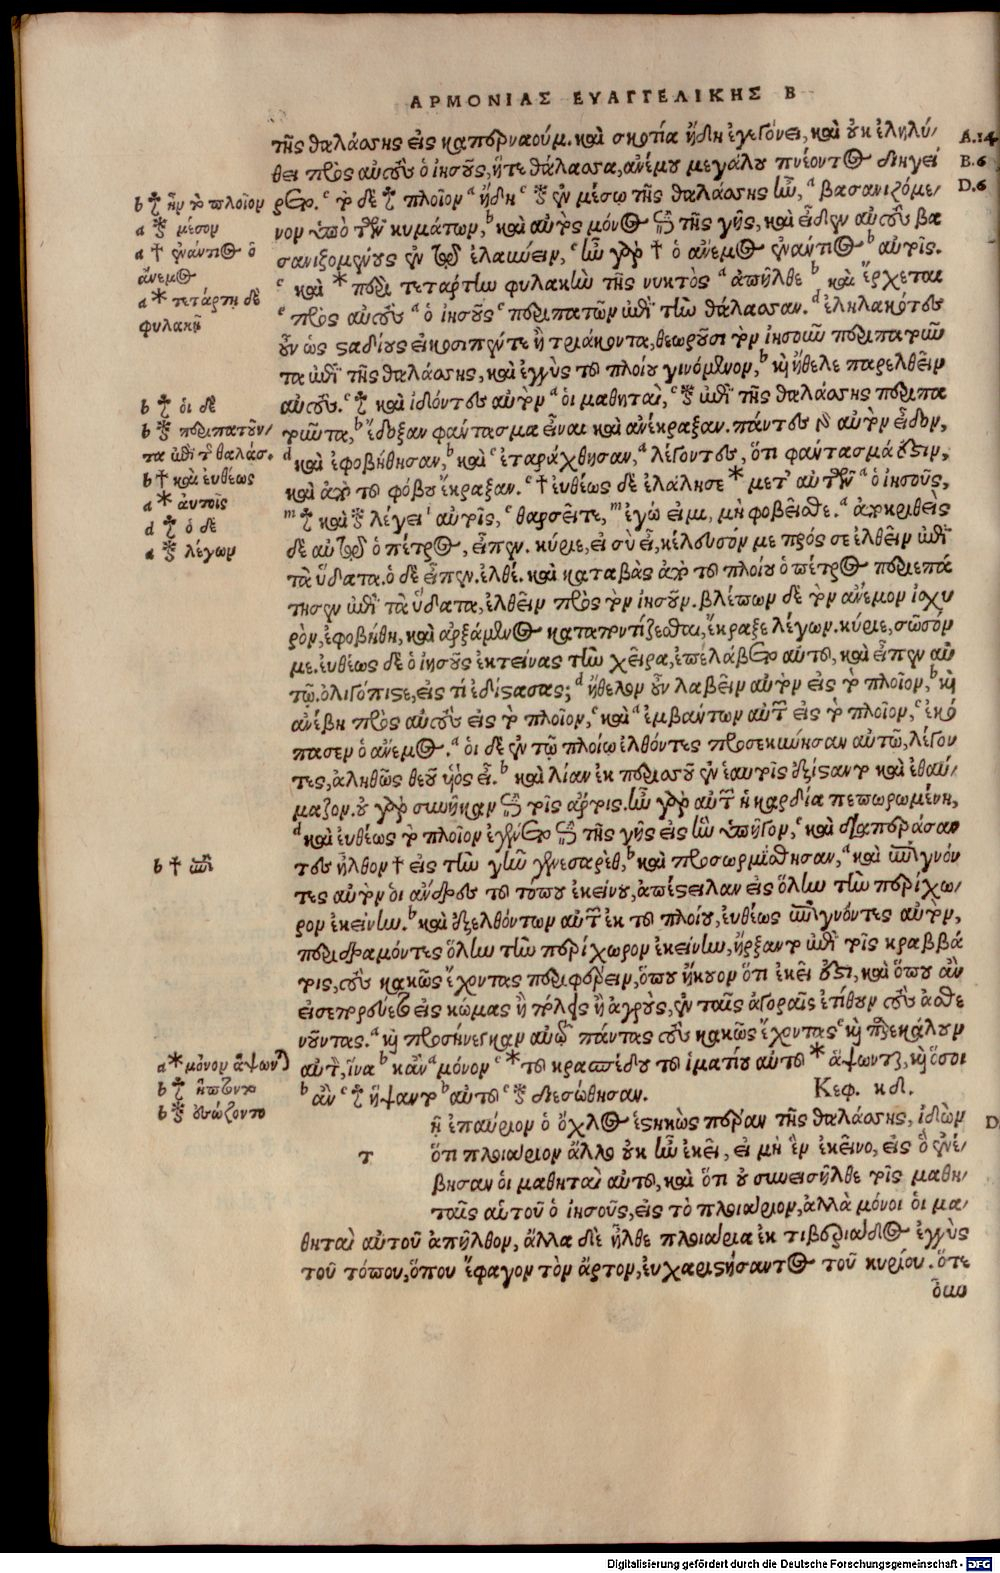 ΑΡΜΟΝΙΑΣ ΕΥΑΓΓΕΛΙΚΗΣ Β
τῆς θαλάσσης εἰς καπερναούμ. καὶ σκοτία ἤδη ἐγεγόνει, καὶ οὐκ ἐληλύ/
θει πρὸς αὐτοὺς ὁ ἰησοῦς, ἥτε θάλασσα, ἀνέμου μεγάλου πνέοντος διηγεί
ρετο. c τὸ δὲ ☧ πλοῖον a ἤδη c ⁕ ἐν μέσῳ τῆς θαλάσσης ἦν, a βασανιζόμε/
νον ὑπὸ τῶν κυμάτων, b καὶ αὐτὸς μόνος ἐπὶ τῆς γῆς, καὶ εἶδεν αὐτοὺς βα
σανιζομένους ἐν τῷ ἐλαύνειν, c ἦν γὰρ † ὁ ἄνεμος ἐναντίος b αὐτοῖς.
c καὶ * περὶ τετάρτην φυλακὴν τῆς νυκτὸς a ἀπῆλθε b καὶ ἔρχεται
c πρὸς αὐτοὺς a ὁ ἰησοῦς c περιπατῶν ἐπὶ τὴν θάλασσαν. d ἐληλακότες
οὖν ὡς σταδίους εἰκοσιπέντε ἢ τριάκοντα, θεωροῦσι τὸν ἰησοῦν περιπατοῦν
τα ἐπὶ τῆς θαλάσσης, καὶ ἐγγὺς τοῦ πλοίου γινόμενον, b καὶ ἤθελε παρελθεῖν
αὐτούς. c ☧ καὶ ἰδόντες αὐτὸν a οἱ μαθηταὶ, c ⁕ ἐπὶ τῆς θαλάσσης περιπα
τοῦντα, b ἔδοξαν φάντασμα εἶναι καὶ ἀνέκραξαν. πάντες γὰρ αὐτὸν εἶδον,
d καὶ ἐφοβήθησαν, b καὶ c ἐταράχθησαν, a λέγοντες, ὅτι φάντασμά ἐστιν,
καὶ ἀπὸ τοῦ φόβου ἔκραξαν. c † ἐυθέως δὲ ἐλάλησε * μετ' αὐτῶν a ὁ ἰησοῦς,
m ☧ καὶ ⁕ λέγει i αὐτοῖς, c θαρσεῖτε, m ἐγώ εἰμι, μὴ φοβεῖσθε. a ἀποκριθεὶς
δὲ αὐτῷ ὁ πέτρος, εἶπεν. κύριε, εἰ σὺ εἶ, κέλευσόν με πρός σε ἐλθεῖν ἐπὶ
τὰ ὕδατα. ὁ δὲ εἶπεν. ἐλθέ. καὶ καταβὰς ἀπὸ τοῦ πλοίου ὁ πέτρος περιεπά
τησεν ἐπὶ τὰ ὕδατα, ἐλθεῖν πρὸς τὸν ἰησοῦν. βλέπων δὲ τὸν ἄνεμον ἰσχυ
ρὸν, ἐφοβήθη, καὶ ἀρξάμενος καταποντίζεσθαι, ἔκραξε λέγων. κύριε, σῶσόν
με. ἐυθέως δὲ ὁ ἰησοῦς ἐκτείνας τὴν χεῖρα, ἐπελάβετο αὐτοῦ, καὶ εἶπεν αὐ
τῷ. ὀλιγόπιστε, εἰς τί ἐδίστασας; d ἤθελον οὖν λαβεῖν αὐτὸν εἰς τὸ πλοῖον, b καὶ
ἀνέβη πρὸς αὐτοὺς εἰς τὸ πλοῖον, c καὶ a ἐμβάντων αὐτῶν εἰς τὸ πλοῖον, c ἐκό
πασεν ὁ ἄνεμος. a οἱ δὲ ἐν τῷ πλοίῳ ἐλθόντες προσεκύνησαν αὐτῶ, λέγον
τες, ἀληθῶς θεοῦ υἱὸς εἶ. b καὶ λίαν ἐκ περισσοῦ ἐν ἑαυτοῖς ἐξίσταντο καὶ ἐθαύ/
μαζον. οὐ γὰρ συνῆκαν ἐπὶ τοῖς ἄρτοις. ἦν γὰρ αὐτῶν ἡ καρδία πεπωρωμένη,
d καὶ ἐυθέως τὸ πλοῖον ἐγένετο ἐπὶ τῆς γῆς εἰς ἣν ὑπῆγον, c καὶ διαπεράσαν
τες ἦλθον † εἰς τὴν γῆν γεννεσαρὲθ, b καὶ προσωρμίσθησαν, a καὶ ἐπιγνόν
τες αὐτὸν οἱ ἄνδρες τοῦ τόπου ἐκείνου, ἀπέστειλαν εἰς ὅλην τὴν περίχω/
ρον ἐκείνην. b καὶ ἐξελθόντων αὐτῶν ἐκ τοῦ πλοίου, ἐυθέως ἐπιγνόντες αὐτὸν,
περιδραμόντες ὅλην τὴν περίχωρον ἐκείνην, ἤρξαντο ἐπὶ τοῖς κραββά
τοις, τοὺς κακῶς ἔχοντας περιφέρειν, ὅπου ἤκουον ὅτι ἐκεῖ ἐστι, καὶ ὅπου ἂν
εἰσεπορεύετο εἰς κώμας ἢ πόλεις ἢ ἀγροὺς, ἐν ταῖς ἀγοραῖς ἐτίθουν τοὺς ἀσθε
νοῦντας. a καὶ προσήνεγκαν αὐτῷ πάντας τοὺς κακῶς ἔχοντας c καὶ παρεκάλουν
αὐτὸν, ἵνα b κἂν a μόνον c * τοῦ κρασπέδου τοῦ ἱματίου αὐτοῦ * ἅψωνται, καὶ ὅσοι
b ἂν c ☧ ἥψαντο b αὐτοῦ c ⁕ διεσώθησαν. Κεφ. κδ.
ῇ ἐπαύριον ὁ ὄχλος ἑστηκὼς πέραν τῆς θαλάσσης, ἰδὼν
τ ὅτι πλοιάριον ἄλλο οὐκ ἦν ἐκεῖ, εἰ μὴ ἓν ἐκεῖνο, εἰς ὃ ἐνέ/
βησαν οἱ μαθηταὶ αὐτοῦ, καὶ ὅτι οὐ συνεισῆλθε τοῖς μαθη/
ταῖς αὑτοῦ ὁ ἰησοῦς, εἰς τὸ πλοιάριον, ἀλλὰ μόνοι οἱ μα/
θηταὶ αὐτοῦ ἀπῆλθον, ἄλλα δὲ ἦλθε πλοιάρια ἐκ τιβεριάδος ἐγγὺς
τοῦ τόπου, ὅπου ἔφαγον τὸν ἄρτον, ἐυχαριστήσαντος τοῦ κυρίου. ὅτε
οὖν
A.14
B.6
D.6
D.
b ☧ ἦν τὸ πλοῖον
a ⁕ μέσον
a † ἐναντίος ὁ
ἄνεμος
a * τετάρτῃ δὲ
φυλακῇ
b ☧ οἱ δὲ
b ⁕ περιπατοῦν/
τα ἐπὶ τῆς θαλάσ.
b † καὶ ἐυθέως
a * ἀυτοῖς
d ☧ ὁ δὲ
a ⁕ λέγων
b † ἐπὶ
a * μόνον ἅψωνται
b ☧ ἥπτοντο
b ⁕ ἐσώζοντο
Digitalisierung gefördert durch die Deutsche Forschungsgemeinschaft - DFG